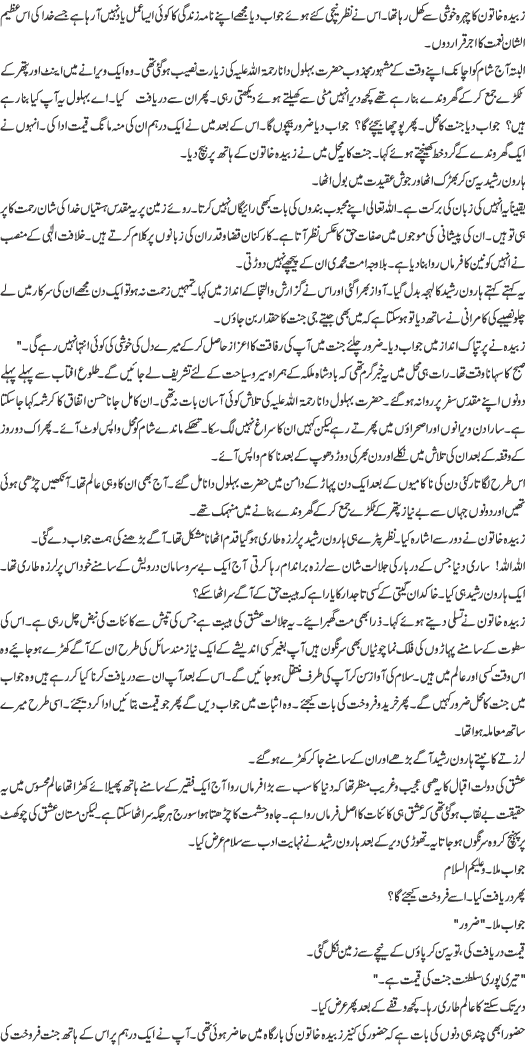 زبیدہ خاتون کا چہرہ خوشی سے کھل رہا تھا۔ اس نے نظر نیچی کئے ہوئے جواب دیا مجھے اپنے نامہ زندگی کا کوئی ایسا عمل یاد نہیں آ رہا ہے جسے خدا کی اس عظیم
الشان نعمت کا اجر قرار دوں۔
البتہ آج شام کو اچانک اپنے وقت کے مشہور مجذوب حضرت بہلول دانا رحمۃ اللہ علیہ کی زیارت نصیب ہوگئی تھی۔ وہ ایک ویرانے میں اینٹ اور پتھر کے
ٹکڑے جمع کر کے گھروندے بنا رہے تھے کچھ دیر انہیں مٹی سے کھیلتے ہوئے دیکھتی رہی۔ پھر ان سے دریافت کیا۔ اے بہلول یہ آپ کیا بنا رہے
ہیں؟ جواب دیا جنت کا محل۔ پھر پوچھا بیچئے گا؟ جواب دیا ضرور بیچوں گا۔ اس کے بعد میں نے ایک درہم ان کی منہ مانگ قیمت ادا کی۔ انہوں نے
ایک گھروندے کے گرد خط کھینچتے ہوئے کہا۔ جنت کا یہ محل میں نے زبیدہ خاتون کے ہاتھ پر بیچ دیا۔
ہارون رشید یہ سن کر بھڑک اٹھا اور جوش عقیدت میں بول اٹھا۔
یقیناً یہ انہیں کی زبان کی برکت ہے۔ اللہ تعالی اپنے محبوب بندوں کی بات کبھی رائیگاں نہیں کرتا۔ روئے زمین پر یہ مقدس ہستیاں خدا کی شان رحمت کا پر
ہی تو ہیں۔ ان کی پیشانی کی موجوں میں صفات حق کا عکس نظر آتا ہے۔ کارکنان قضا و قدر ان کی زبانوں پر کلام کرتے ہیں۔ خلافت الٰہی کے منصب
نے انہیں کونین کا فرماں روا بنا دیا ہے۔ بلا وجہ امت محمدی ان کے پیچھے نہیں دوڑتی۔
یہ کہتے کہتے ہارون رشید کا لہجہ بدل گیا۔ آواز بھرا گئی اور اس نے گزارش والتجا کے انداز میں کہا۔ تمہیں زحمت نہ ہو تو ایک دن مجھے ان کی سرکار میں لے
چلو نصیبے کی کامرانی نے ساتھ دیا تو ہوسکتا ہے کہ میں بھی جیتے جی جنت کا حقدار بن جاؤں۔
زبیدہ نے پرتپاک انداز میں جواب دیا۔ ضرور چلئے جنت میں آپ کی رفاقت کا اعزاز حاصل کر کے میرے دل کی خوشی کی کوئی انتہا نہیں رہے گی۔"
صبح کا سہانا وقت تھا۔ رات ہی محل میں یہ خبر گرم تھی کہ بادشاہ ملکہ کے ہمراہ سیر و سیاحت کے لئے تشریف لے جائیں گے۔ طلوع آفتاب سے پہلے پہلے
دونوں اپنے مقدس سفر پر روانہ ہوگئے۔ حضرت بہلول دانا رحمۃ اللہ علیہ کی تلاش کوئی آسان بات نہ تھی۔ ان کا مل جانا حسن اتفاق کا کرشمہ کہا جاسکتا
ہے۔ سارا دن ویرانوں اور صحراؤں میں پھرتے رہے لیکن کہیں ان کا سراغ نہیں لگ سکا۔ تھکے ماندے شام کو محل واپس لوٹ آئے۔ پھر اک دو روز
کے وقفہ کے بعد ان کی تلاش میں نکلے اور دن بھر کی دوڑ دھوپ کے بعد ناکام واپس آئے۔
اس طرح لگاتار کئی دن کی ناکامیوں کے بعد ایک دن پہاڑ کے دامن میں حضرت بہلول دانا مل گئے۔ آج بھی ان کا وہی عالم تھا۔ آنکھیں چڑھی ہوئی
تھیں اور دونوں جہاں سے بے نیاز پتھر کے ٹکڑے جمع کر کے گھروندے بنانے میں منہمک تھے۔
زبیدہ خاتون نے دور سے اشارہ کیا۔ نظر پڑتے ہی ہارون رشید پر لرزہ طاری ہوگیا قدم اٹھانا مشکل تھا۔ آگے بڑھنے کی ہمت جواب دے گئی۔
اللہ اللہ! ساری دنیا جس کے دربار کی جلالت شان سے لرزہ براندام رہا کرتی آج ایک بے سرو سامان درویش کے سامنے خود اس پر لرزہ طاری تھا۔
ایک ہارون رشید ہی کیا۔ خاکدان گیتی کے کسی تاجدار کا یارا ہے کہ ہیبت حق کے آگے سر اٹھا سکے؟
زبیدہ خاتون نے تسلی دیتے ہوئے کہا۔ ذرا بھی مت گھبرائیے۔ یہ جلالت عشق کی ہیبت ہے جس کی تپش سے کائنات کی نبض چل رہی ہے۔ اس کی
سطوت کے سامنے پہاڑوں کی فلک نما چوٹیاں بھی سرنگوں ہیں آپ بغیر کسی اندیشے کے ایک نیاز مند سائل کی طرح ان کے آگے کھڑے ہو جائیے وہ
اس وقت کسی اور عالم میں ہیں۔ سلام کی آواز سن کر آپ کی طرف منتقل ہو جائیں گے۔ اس کے بعد آپ ان سے دریافت کرنا کیا کر رہے ہیں وہ جواب
میں جنت کا محل ضرور کہیں گے۔ پھر خرید و فروخت کی بات کیجئے۔ وہ اثبات میں جواب دیں گے پھر جو قیمت بتائیں ادا کر دیجئے۔ اسی طرح میرے
ساتھ معاملہ ہوا تھا۔
لرزتے کانپتے ہارون رشید آگے بڑھے اور ان کے سامنے جا کر کھڑے ہوگئے۔
عشق کی دولت اقبال کا یہ بھی عجیب و غریب منظر تھا کہ دنیا کا سب سے بڑا فرماں روا آج ایک فقیر کے سامنے ہاتھ پھیلائے کھڑا تھا عالم محسوس میں یہ
حقیقت بے نقاب ہوگئی تھی کہ عشق ہی کائنات کا اصل فرماں روا ہے۔ جاہ و حشمت کا چڑھتا ہوا سورج ہر جگہ سر اٹھا سکتا ہے۔ لیکن مستان عشق کی چوکھٹ
پر پہنچ کر وہ سرنگوں ہو جاتا ہے تھوڑی دیر کے بعد ہارون رشید نے نہایت ادب سے سلام عرض کیا۔
جواب ملا۔ وعلیکم السلام
پھر دریافت کیا۔ اسے فروخت کیجئے گا؟
جواب ملا۔ "ضرور"
قیمت دریافت کی، تو یہ سن کر پاؤں کے نیچے سے زمین نکل گئی۔
"تیری پوری سلطنت جنت کی قیمت ہے۔"
دیر تک سکتے کا عالم طاری رہا۔ کچھ وقفے کے بعد پھر عرض کیا۔
حضور ابھی چند ہی دنوں کی بات ہے کہ حضور کی کنیز زبیدہ خاتون کی بارگاہ میں حاضر ہوئی تھی۔ آپ نے ایک درہم پر اس کے ہاتھ جنت فروخت کی